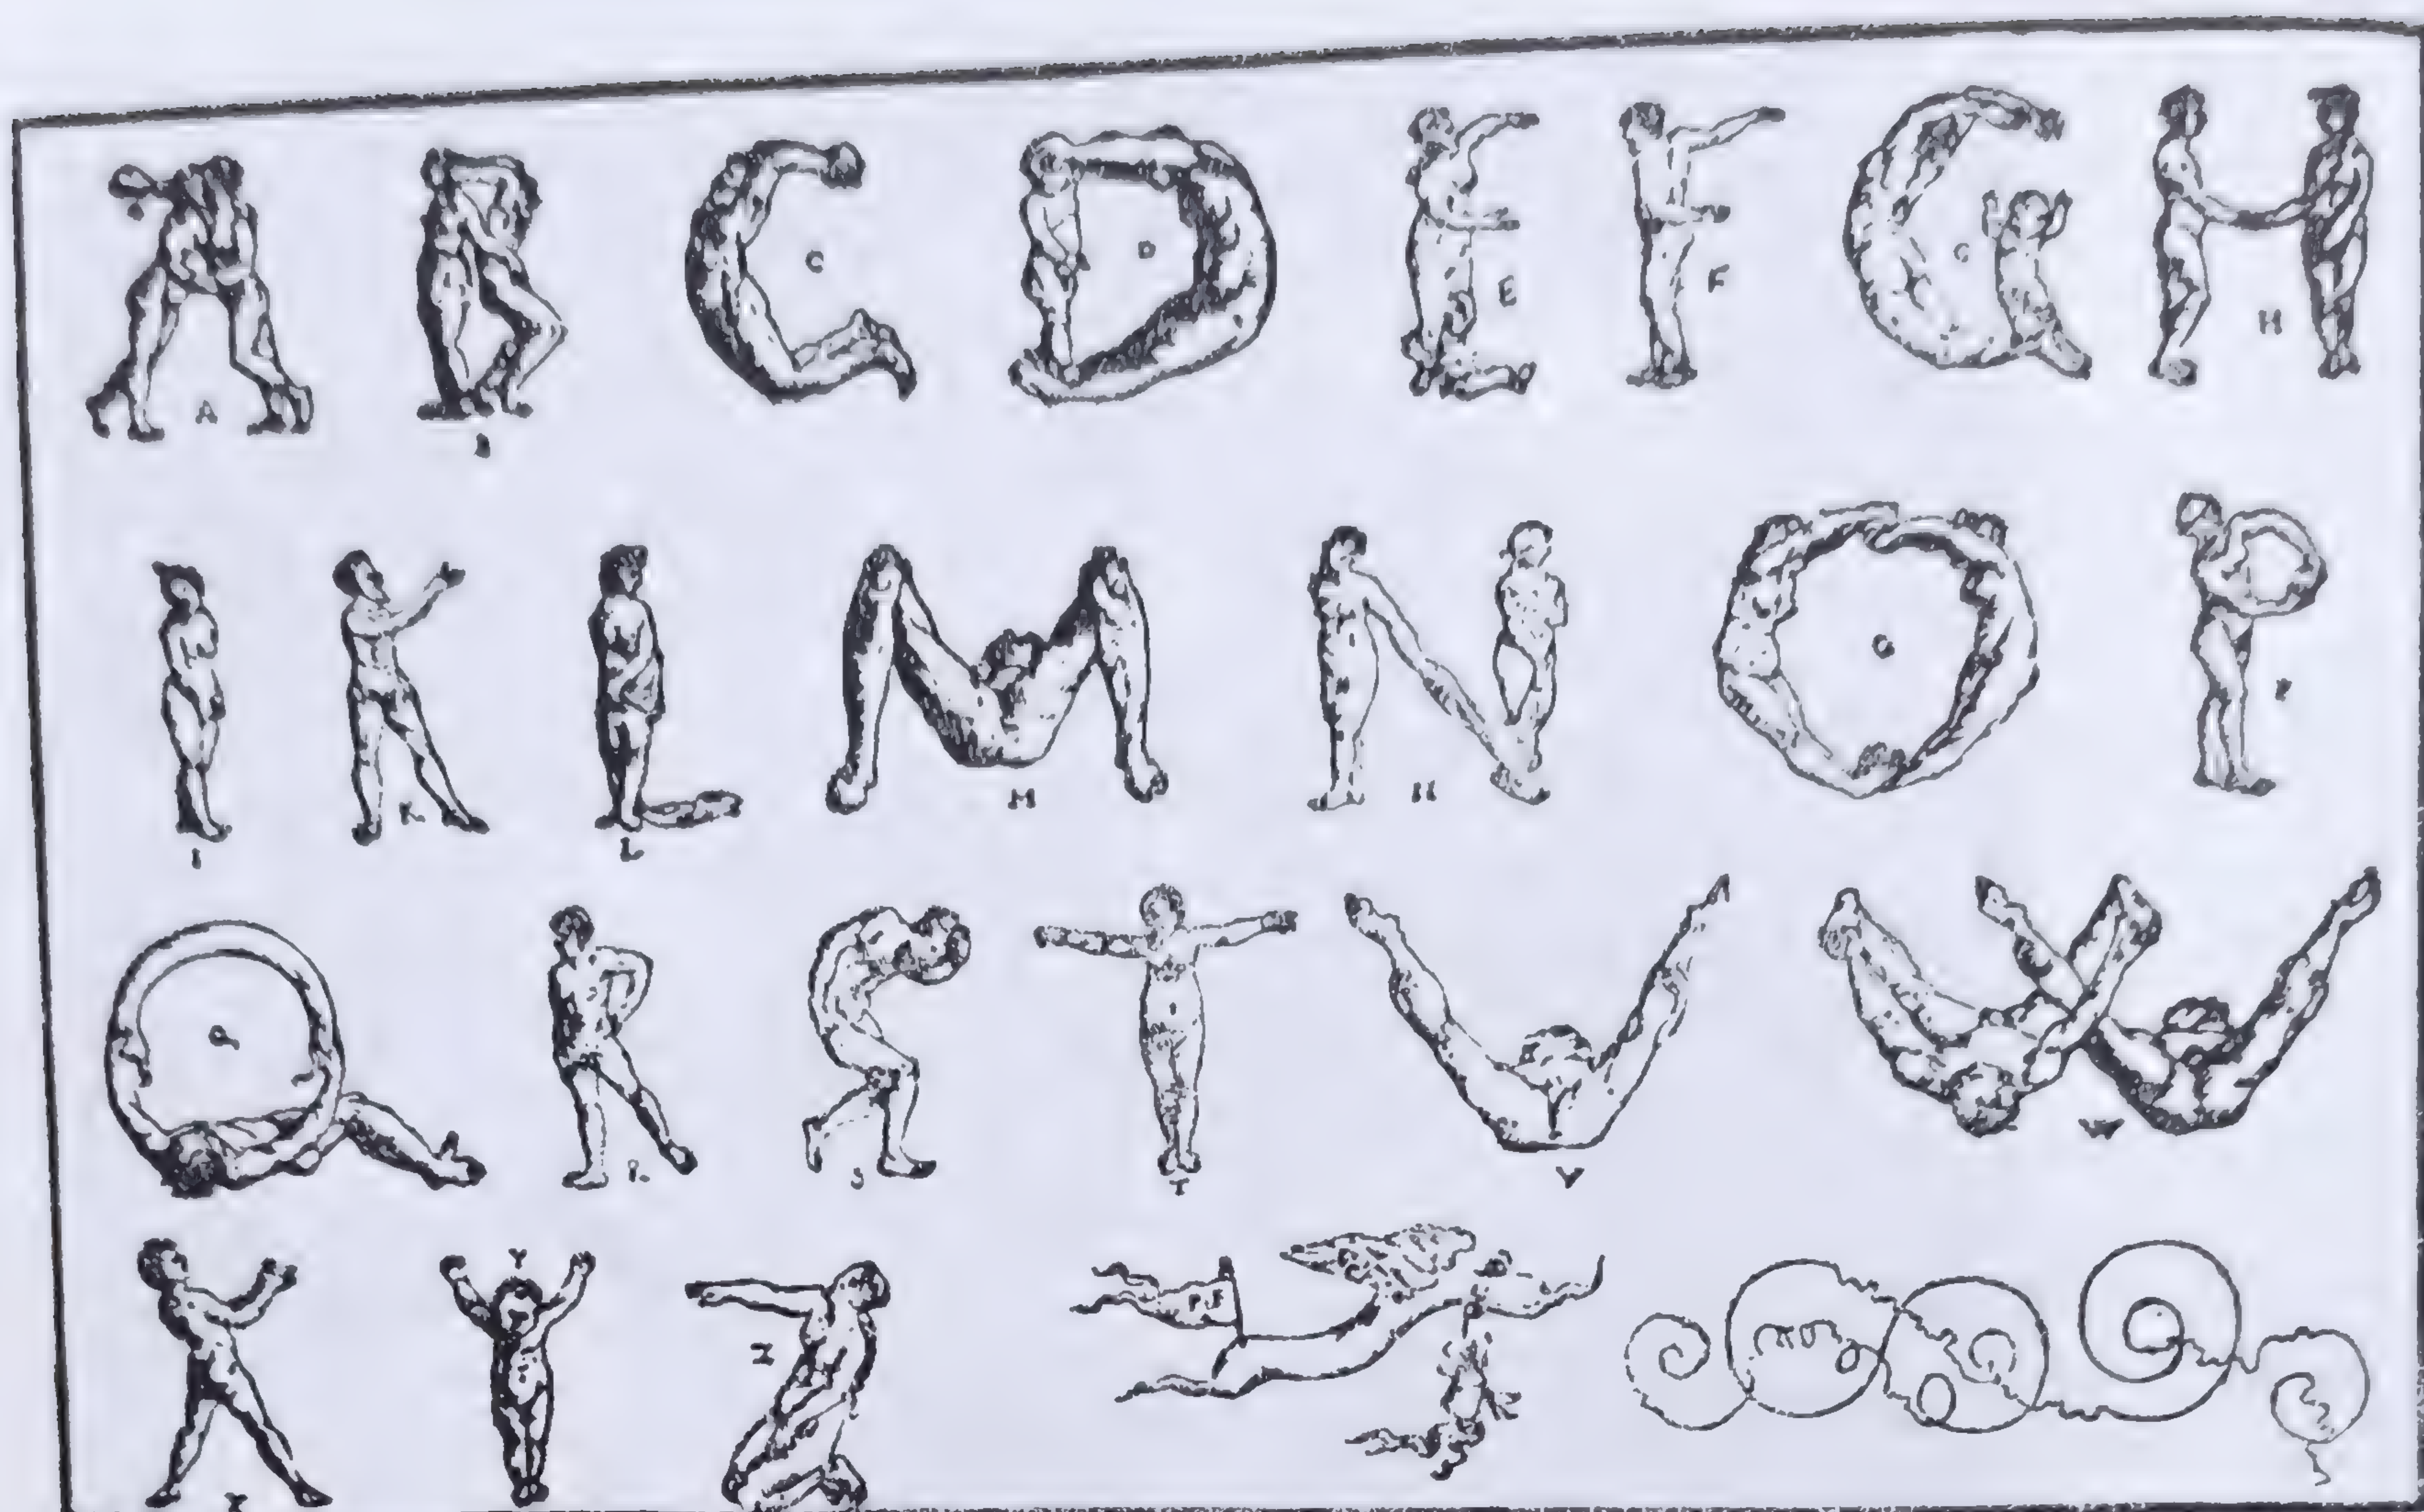 A B C D E F G H
I K L M N O P
Q R S T V W
X Y Z P.F